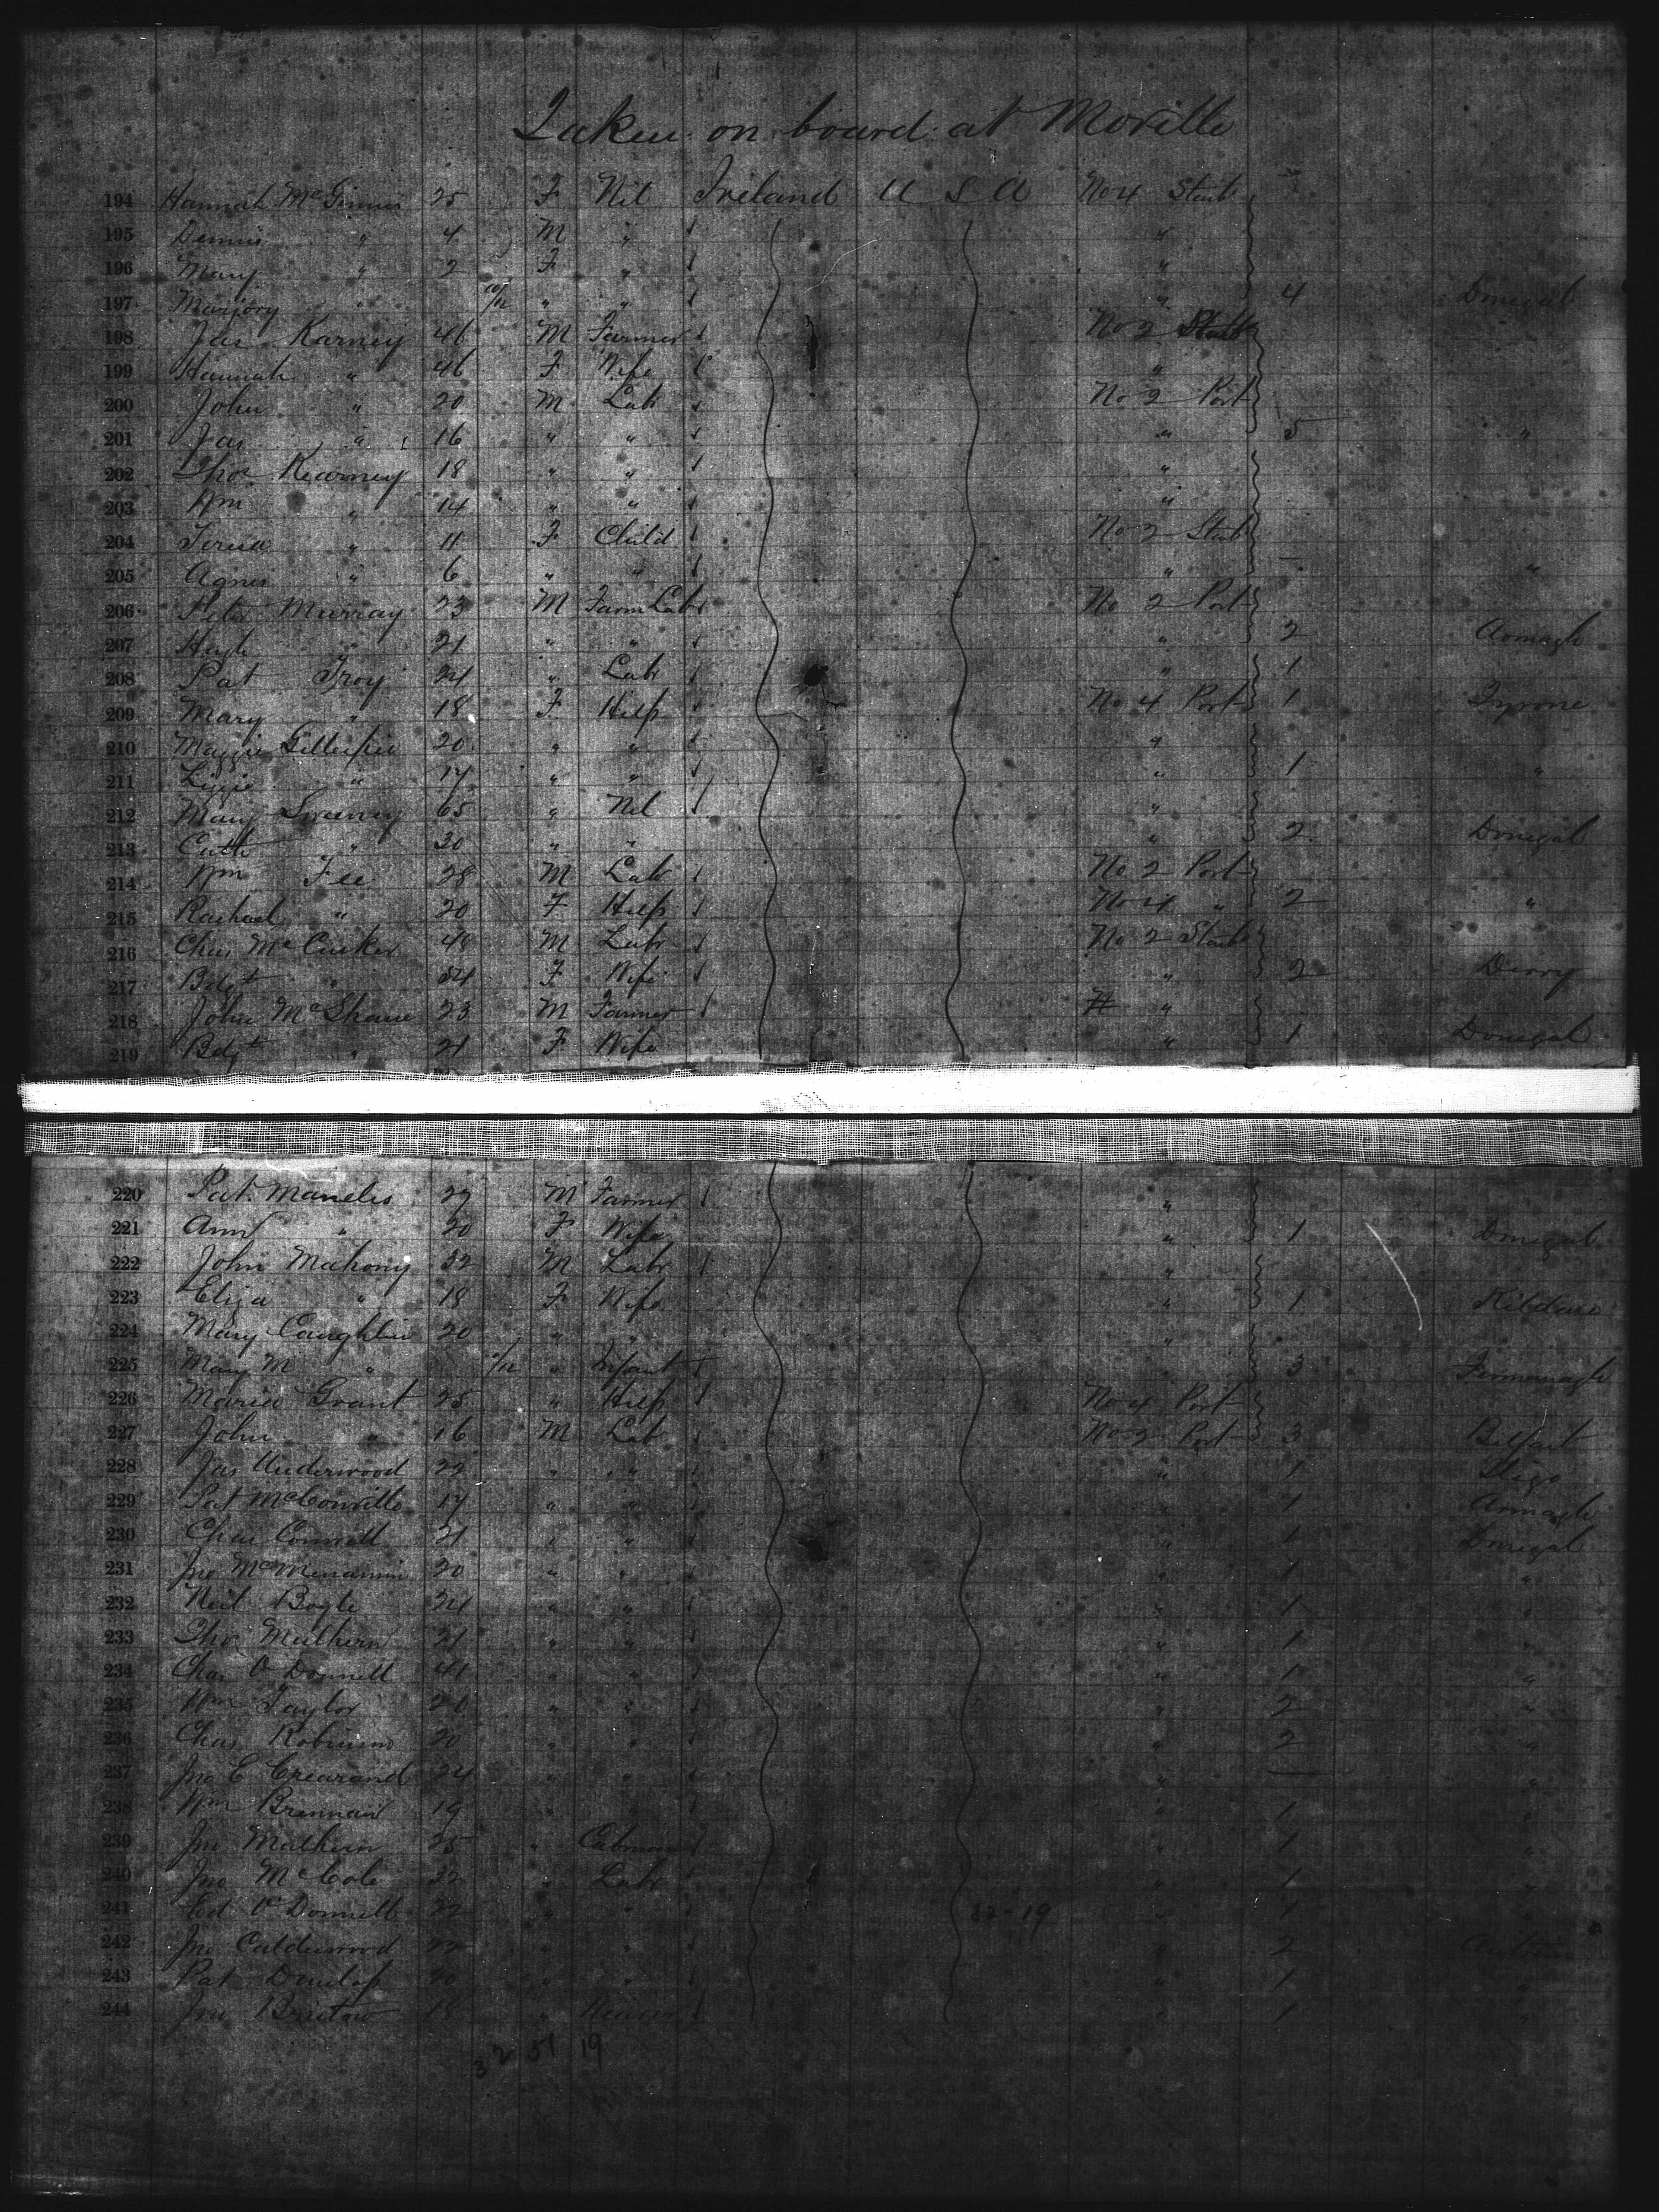 Taken on board at Moville
194 Hannah McGinnis 25 F Nil Ireland U S A No 4 Starb
195 Dennis " 4 M " "
196 Mary " 2 F " "
197 Marjory " 10/12 " " " 4 Donegal
198 Jas Karney 46 M Farmer No 2 Starb
199 Hannah " 46 F Wife "
200 John " 20 M Lab No 2 Port
201 Jas " 16 " " " 5 "
202 Thos Kearney 18 " " "
203 Wm " 14 " " "
204 Teresa " 11 F Child No 2 Starb
205 Agnes " 6 " " " — "
206 Peter Murray 23 M Farm Labr No 2 Port
207 Hugh " 21 " " " 2 Armagh
208 Pat Troy 24 " Labr " 1
209 Mary " 18 F Help No 4 Port 1 Tyrone
210 Maggie Gillespie 20 " " "
211 Lizzie " 17 " " " 1 "
212 Mary Sweeney 65 " Nil "
213 Cath " 30 " " " 2 Donegal
214 Wm Fee 28 M Labr No 2 Port
215 Rachael " 20 F Help No 4 " 2 "
216 Chas McCusker 48 M Labr No 2 Starb
217 Bdgt " 34 F Wife " 2 Derry
218 John McShane 23 M Farmer "
219 Bdgt " 21 F Wife " 1 Donegal
220 Pat Manelis 27 M Farmer "
221 Ann " 20 F Wife " 1 Donegal
222 John Mahony 32 M Labr "
223 Eliza " 18 F Wife " 1 Kildare
224 Mary Coughlin 20 " " "
225 Mary M " /12 " Infant " 3 Fermanagh
226 Maria Grant 25 " Help No 4 Port
227 John " 16 M Lab No 2 Port 3 Belfast
228 Jas Underwood 22 " " " 1 Sligo
229 Pat McConville 17 " " " 1 Armagh
230 Chas Connell 21 " " " 1 Donegal
231 Jno McMenamin 20 " " " 1 "
232 Neil Bogle 24 " " " 1 "
233 Thos Mulhern 21 " " " 1 "
234 Chas O Donnell 41 " " " 1 "
235 Wm Taylor 20 " " " 2 "
236 Chas Robinson 20 " " " 2 "
237 Jno E 24 " " " — "
238 Wm Brennan 19 " " " 1 "
239 Jno Mulhern 25 " Cabman " 1 "
240 Jno McCole 32 " Labr " 1 "
241 Ed O'Donnell 22 " " 32-19 " 1 "
242 Jno Calderwood 22 " " " 2 Antrim
243 Pat Dunlop 20 " " " 1 "
244 Jno 18 " " 1 "
32 51 19